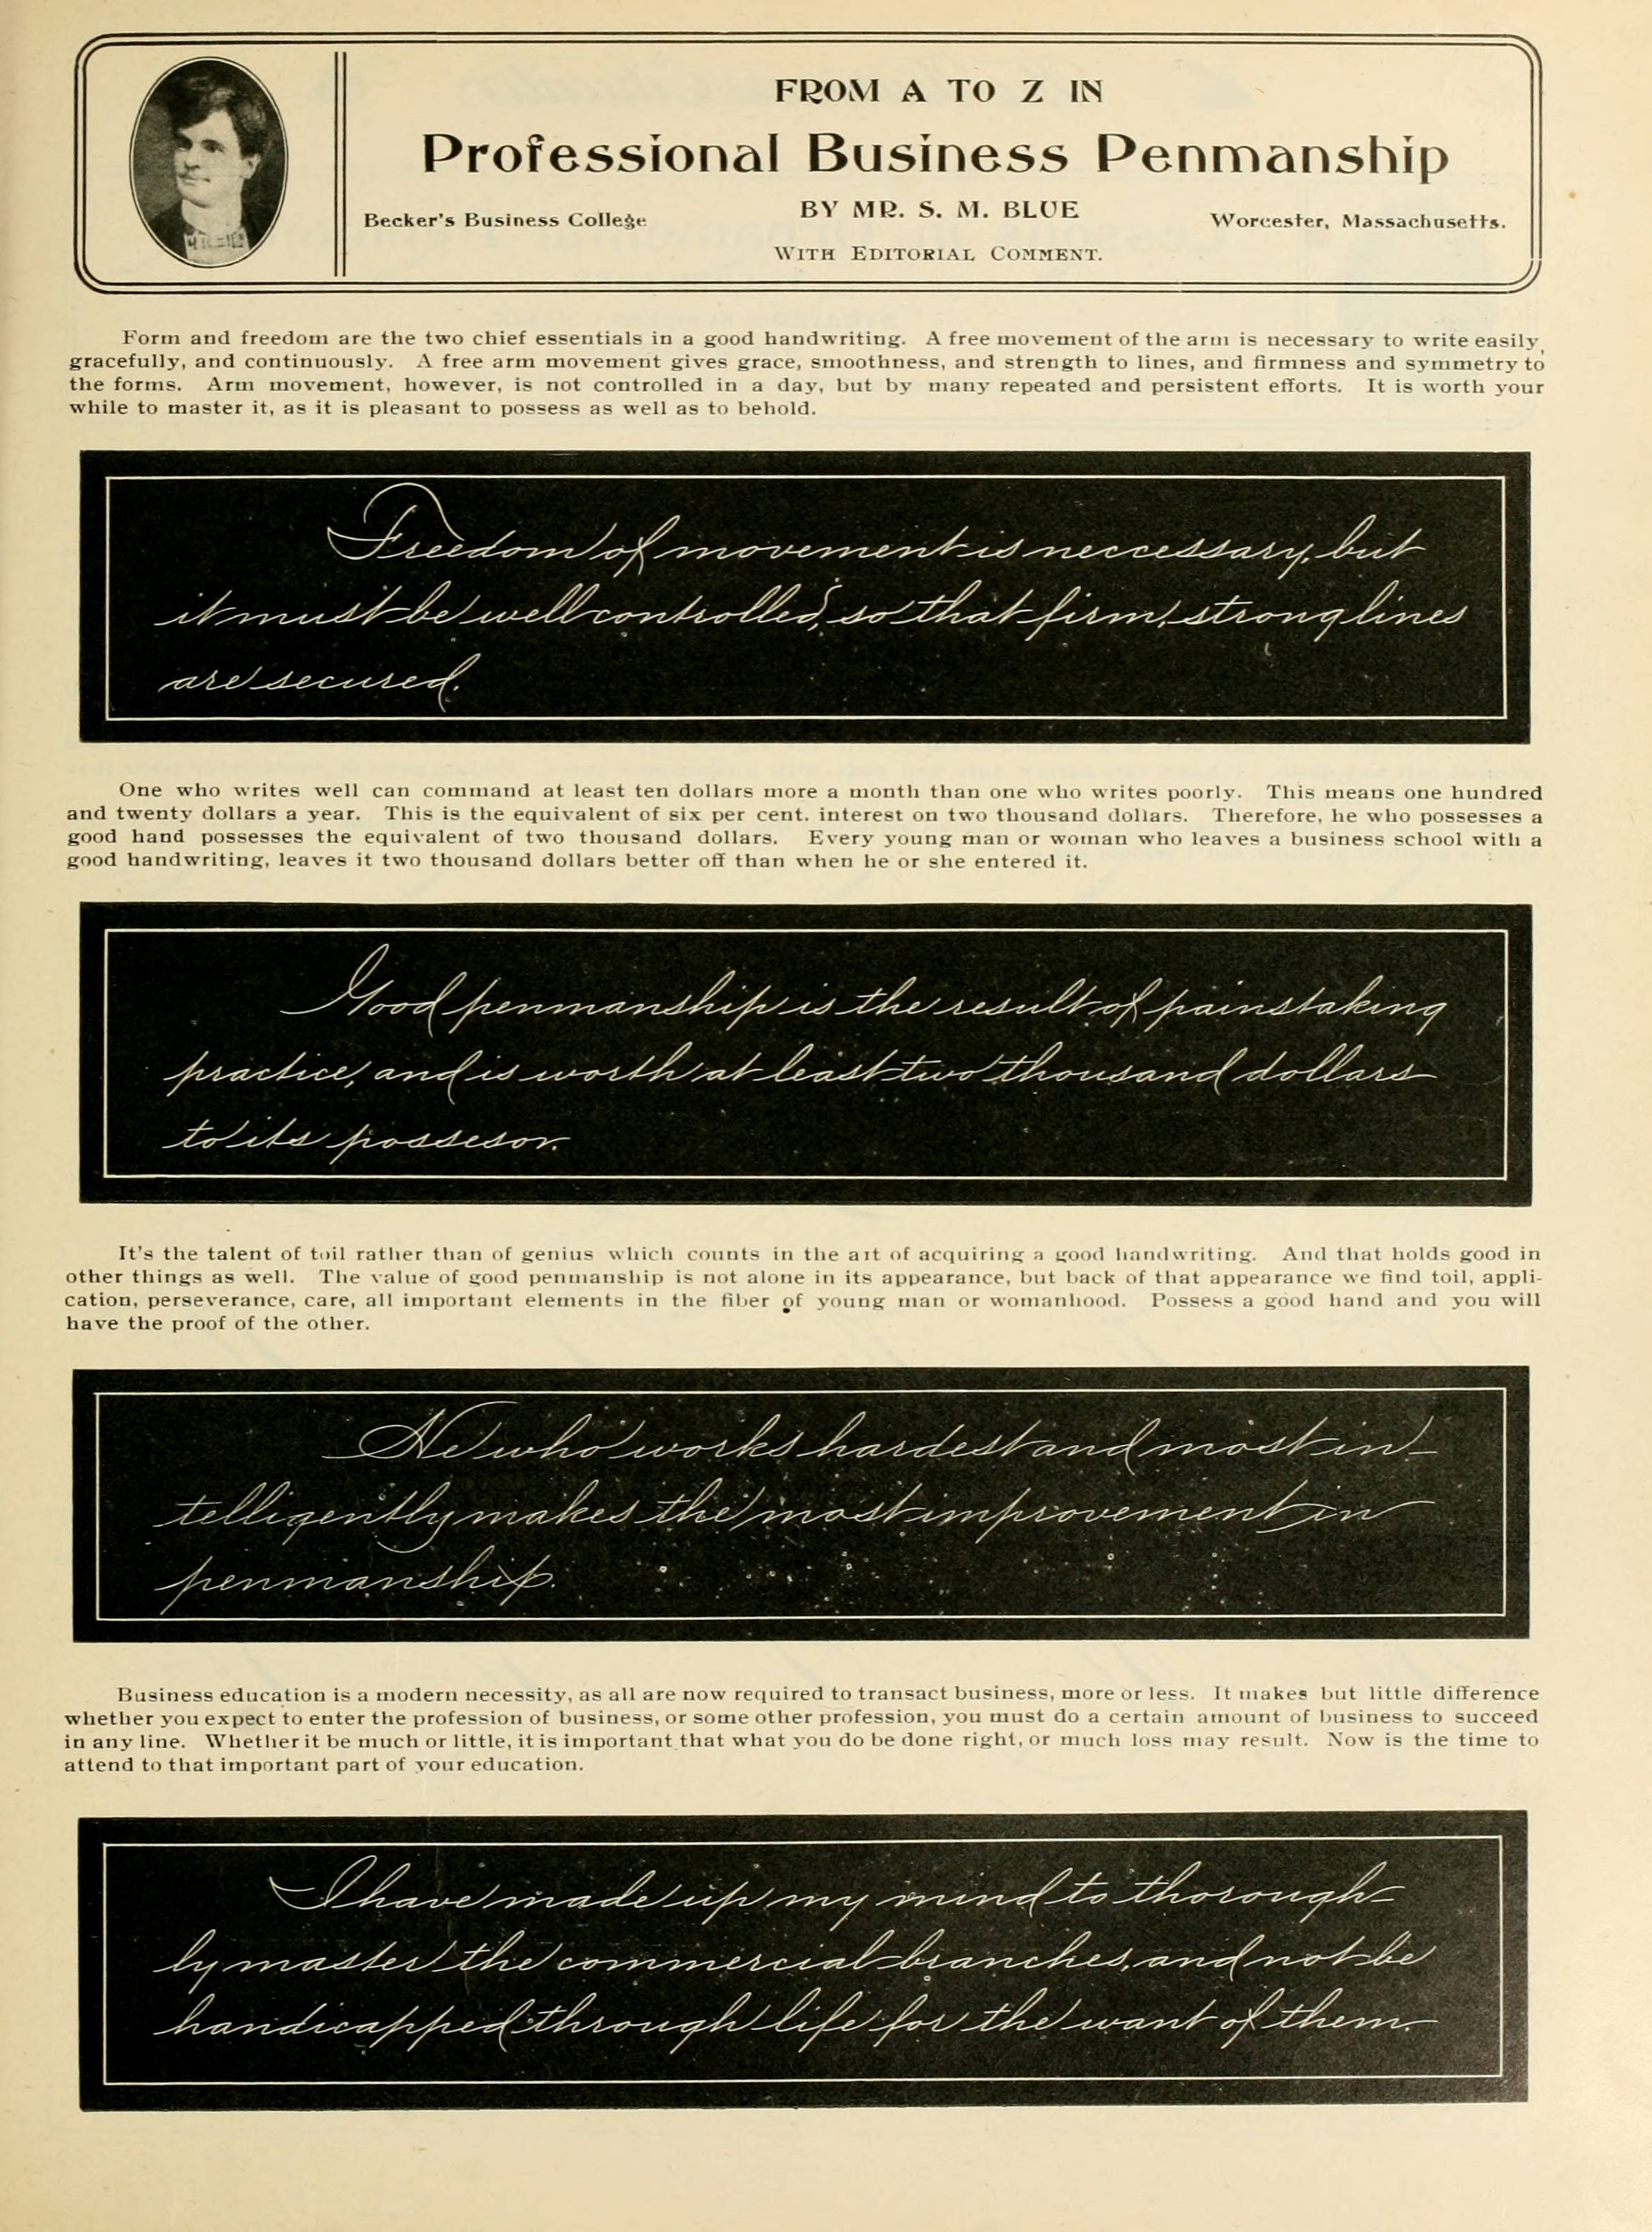 FROM A TO Z IN
Professional Business Penmanship
BY MR. S. M. BLUE
Becker's Business College
Worcester, Massachusetts.
WITH EDITORIAL COMMENT.
Form and freedom are the two chief essentials in a good handwriting. A free movement of the arm is necessary to write easily,
gracefully, and continuously. A free arm movement gives grace, smoothness, and strength to lines, and firmness and symmetry to
the forms. Arm movement, however, is not controlled in a day, but by many repeated and persistent efforts. It is worth your
while to master it, as it is pleasant to possess as well as to behold.
Freedom of movement is neccessary, but
it must be well controlled, so that firm, strong lines
are secured.
One who writes well can command at least ten dollars more a month than one who writes poorly. This means one hundred
and twenty dollars a year. This is the equivalent of six per cent. interest on two thousand dollars. Therefore, he who possesses a
good hand possesses the equivalent of two thousand dollars. Every young man or woman who leaves a business school with a
good handwriting, leaves it two thousand dollars better off than when he or she entered it.
Good penmanship is the result of painstaking
practice, and is worth at least two thousand dollars
to its possesor.
It's the talent of toil rather than of genius which counts in the art of acquiring a good handwriting. And that holds good in
other things as well. The value of good penmanship is not alone in its appearance, but back of that appearance we find toil, appli-
cation, perseverance, care, all important elements in the fiber of young man or womanhood. Possess a good hand and you will
have the proof of the other.
He who works hardest and most in-
telligently makes the most improvement in
penmanship.
Business education is a modern necessity, as all are now required to transact business, more or less. It makes but little difference
whether you expect to enter the profession of business, or some other profession, you must do a certain amount of business to succeed
in any line. Whether it be much or little, it is important that what you do be done right, or much loss may result. Now is the time to
attend to that important part of your education.
I have made up my mind to thorough-
ly master the commercial branches, and not be
handicapped through life for the want of them.